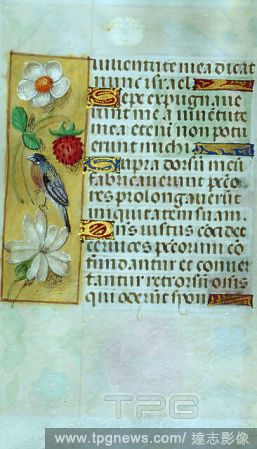 iuventute mea dicat
nunc israel
Sepe expugnave
runt me a iuvētute
mea etenī non potu
erunt michi
Supra dorsū meū
fabricaverunt pccō
res prolongaverūt
iniquitatem suam
Dns iustus cōcidet
cervices peccorum cō
fundantur et conver
tantur retrorsū om̄s
qui oderūt syon
TPG
www.tpgnews.com/ 達志影像